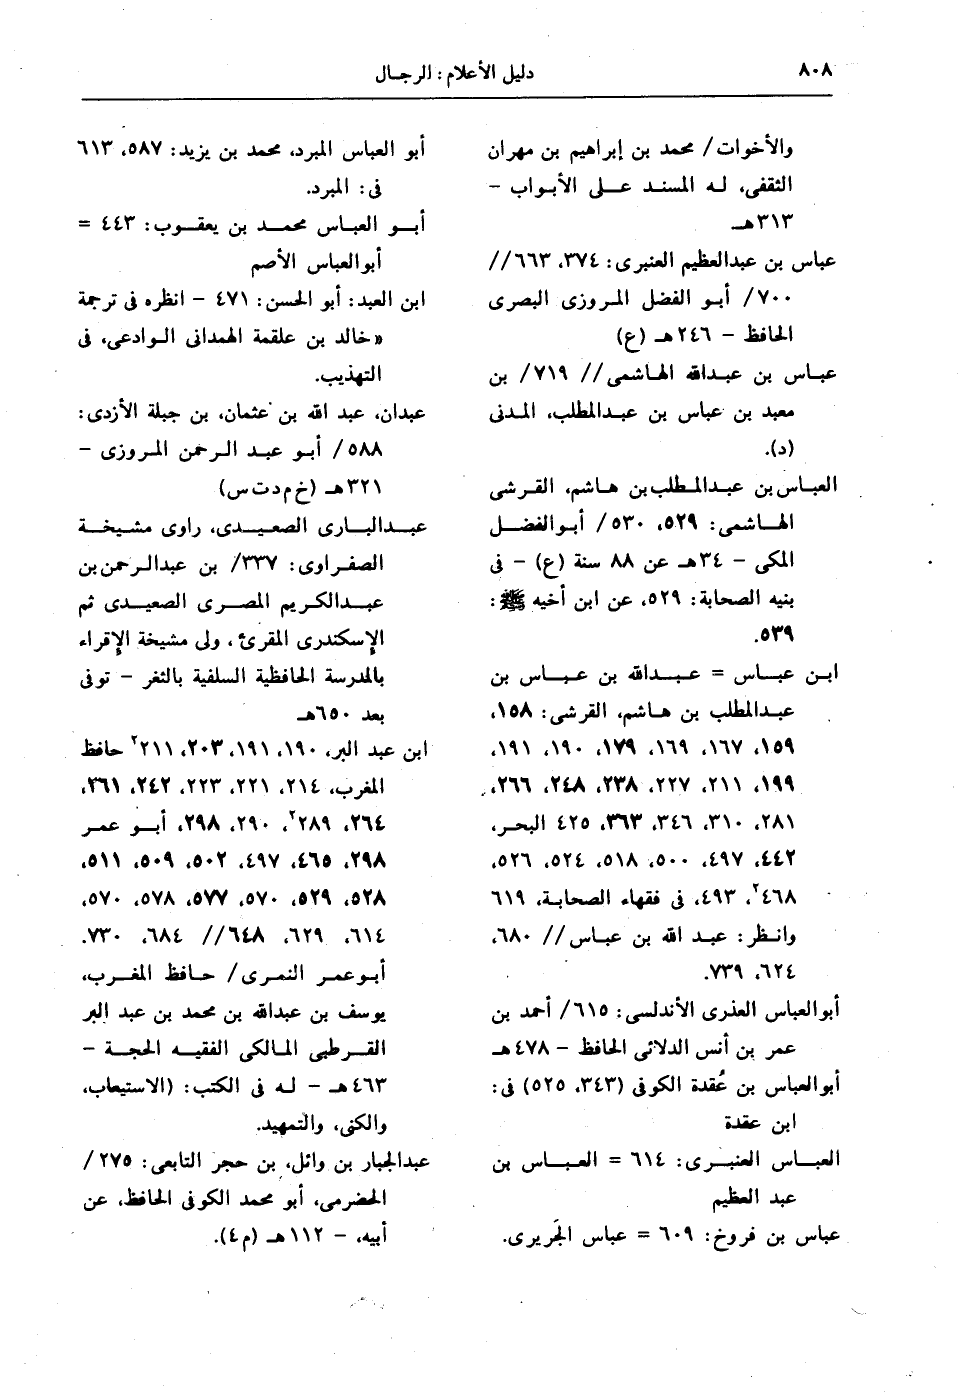 ٨٠٨
دليل الأعلام: الرجال
والأخوات/ محمد بن إبراهيم بن مهران
الثقفى، له المسند على الأبواب –
٣١٣هـ
عباس بن عبدالعظيم العنبرى: ٣٧٤، ٦٦٣//
٧٠٠/ أبو الفضل المروزى البصرى
الحافظ – ٢٤٦هـ (ع)
عباس بن عبدالله الهاشمى// ٧١٩/ بن
معبد بن عباس بن عبدالمطلب، المدنى
(د).
العباس بن عبدالمطلب بن هاشم، القرشى
الهاشمى: ٥٢٩، ٥٣٠/ أبوالفضل
المكى – ٣٤هـ عن ٨٨ سنة (ع) – فى
بنيه الصحابة: ٥٢٩، عن ابن أخيه ﷺ:
٥٣٩.
ابن عباس = عبدالله بن عباس بن
عبدالمطلب بن هاشم، القرشى: ١٥٨،
١٥٩، ١٦٧، ١٦٩، ١٧٩، ١٩٠، ١٩١،
١٩٩، ٢١١، ٢٢٧، ٢٣٨، ٢٤٨، ٢٦٦،
٢٨١، ٣١٠، ٣٤٦، ٣٦٣، ٤٢٥ البحر،
٤٤٢، ٤٩٧، ٥٠٠، ٥١٨، ٥٢٤، ٥٢٦،
٤٦٨٢، ٤٩٣، فى فقهاء الصحابة، ٦١٩
وانظر: عبد الله بن عباس// ٦٨٠،
٦٢٤، ٧٣٩.
أبوالعباس العذرى الأندلسى: ٦١٥/ أحمد بن
عمر بن أنس الدلائى الحافظ – ٤٧٨هـ
أبوالعباس بن عُقدة الكوفى (٣٤٣، ٥٢٥) فى:
ابن عقدة
العباس العنبرى: ٦١٤ = العباس بن
عبد العظيم
عباس بن فروخ: ٦٠٩ = عباس الجَريرى.
أبو العباس المبرد، محمد بن يزيد: ٥٨٧، ٦١٣
فى: المبرد.
أبو العباس محمد بن يعقوب: ٤٤٣ =
أبوالعباس الأصم
ابن العبد: أبو الحسن: ٤٧١ – انظره فى ترجمة
«خالد بن علقمة الهمدانى الوادعى، فى
التهذيب.
عبدان، عبد الله بن عثمان، بن جبلة الأزدى:
٥٨٨/ أبو عبد الرحمن المروزى –
٣٢١هـ (خ م د ت س)
عبدالبارى الصعيدى، راوى مشيخة
الصفراوى: ٣٣٧/ بن عبدالرحمن بن
عبدالكريم المصرى الصعيدى ثم
الإسكندرى المقرئ، ولى مشيخة الإقراء
بالمدرسة الحافظية السلفية بالثغر – توفى
بعد ٦٥٠هـ
ابن عبد البر، ١٩٠، ١٩١، ٢٠٣، ٢١١٢ حافظ
المغرب، ٢١٤، ٢٢١، ٢٢٣، ٢٤٢، ٢٦١،
٢٦٤، ٢٨٩٢، ٢٩٠، ٢٩٨، أبو عمر
٢٩٨، ٤٦٥، ٤٩٧، ٥٠٢، ٥٠٩، ٥١١،
٥٢٨، ٥٢٩، ٥٧٠، ٥٧٧، ٥٧٨، ٥٧٠،
٦١٤، ٦٢٩، ٦٤٨// ٦٨٤، ٧٣٠.
أبوعمر النمرى/ حافظ المغرب،
يوسف بن عبدالله بن محمد بن عبد البر
القرطبى المالكى الفقيه الحجة –
٤٦٣هـ – له فى الكتب: (الاستيعاب،
والكنى، والتمهيد.
عبدالجبار بن وائل، بن حجر التابعى: ٢٧٥/
الحضرمى، أبو محمد الكوفى الحافظ، عن
أبيه، – ١١٢هـ (م٤).